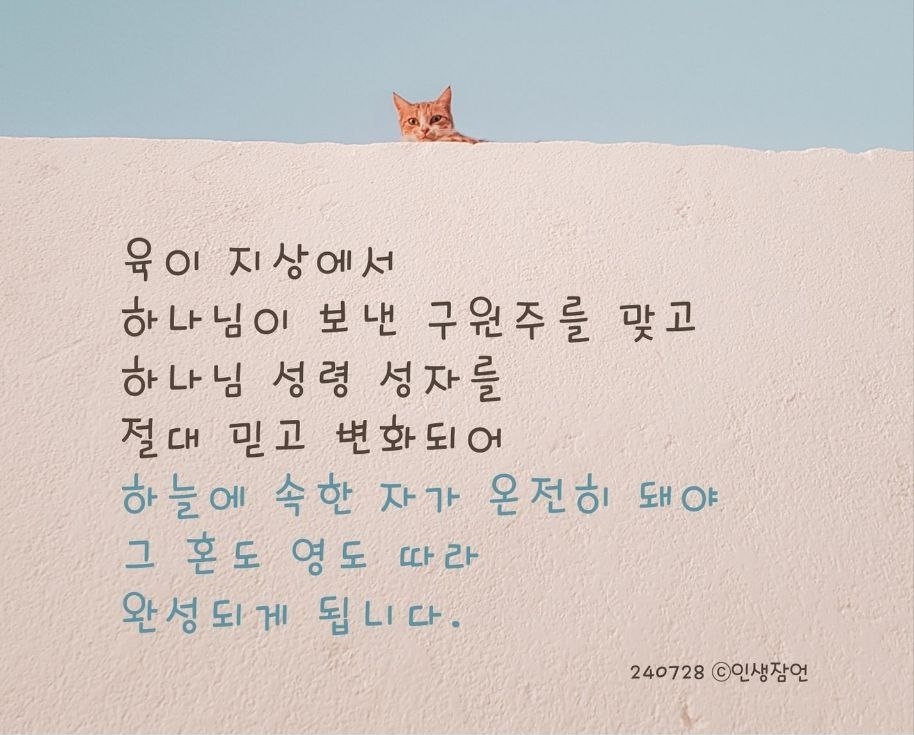 육이 지상에서
하나님이 보낸 구원주를 맞고
하나님 성령 성자를
절대 믿고 변화되어
하늘에 속한 자가 온전히 돼야
그 혼도 영도 따라
완성되게 됩니다.
240728 ⓒ인생잠언